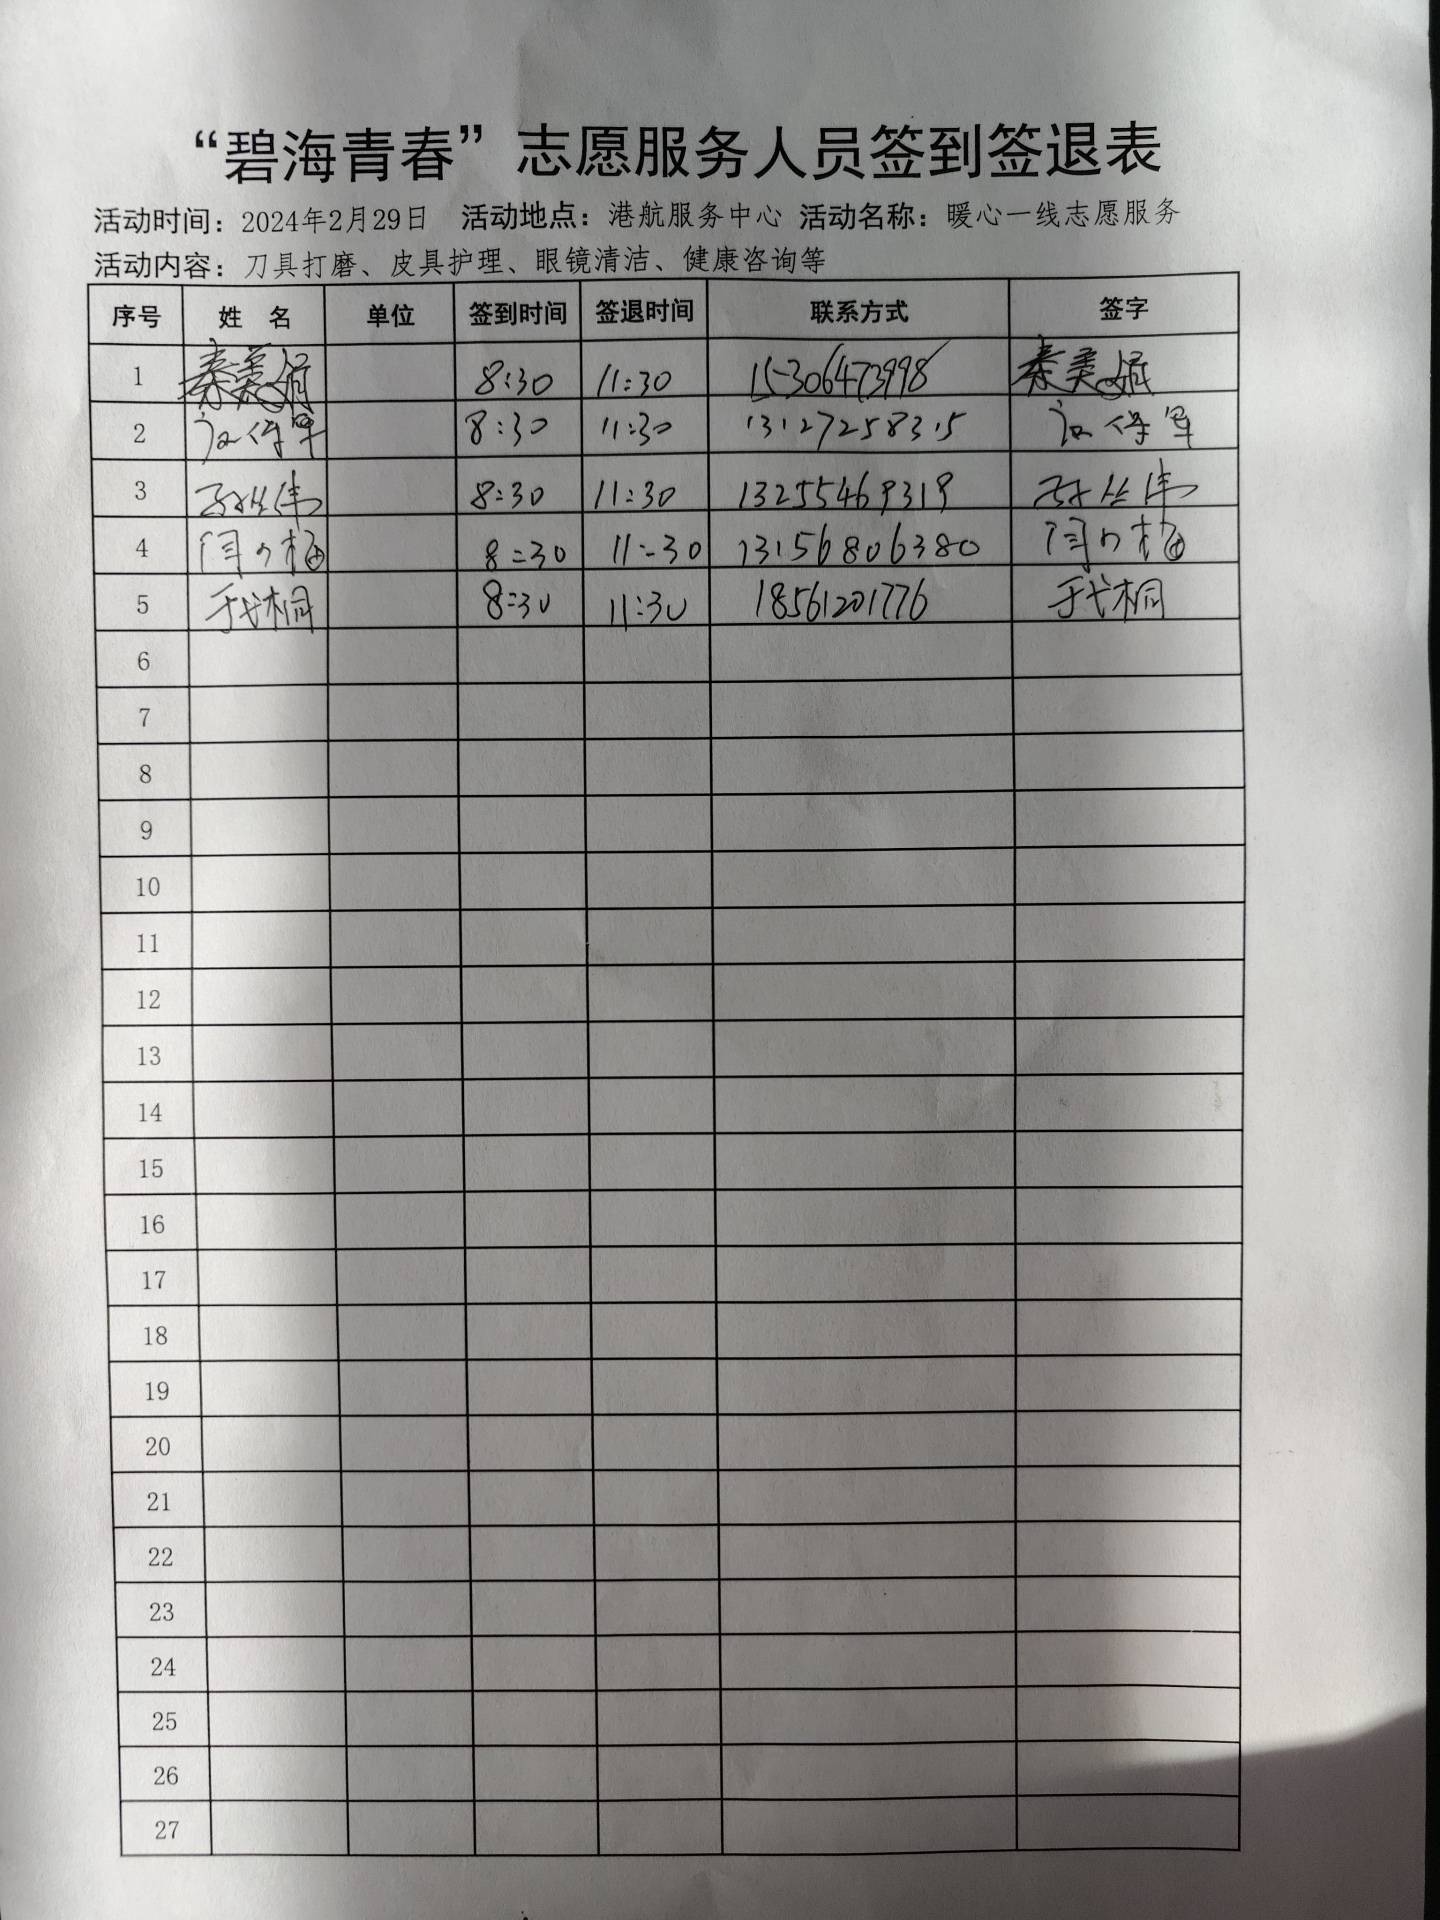 “碧海青春”志愿服务人员签到签退表
活动时间：2024年2月29日 活动地点：港航服务中心 活动名称：暖心一线志愿服务
活动内容：刀具打磨、皮具护理、眼镜清洁、健康咨询等
序号 姓 名 单位 签到时间 签退时间 联系方式 签字
1 秦美娟 8:30 11:30 15306473998 秦美娟
2 8:30 11:30 13127258315
3 8:30 11:30 13255469319
4 8:30 11:30 13156806380
5 桐 8:30 11:30 18561201776 桐
6
7
8
9
10
11
12
13
14
15
16
17
18
19
20
21
22
23
24
25
26
27